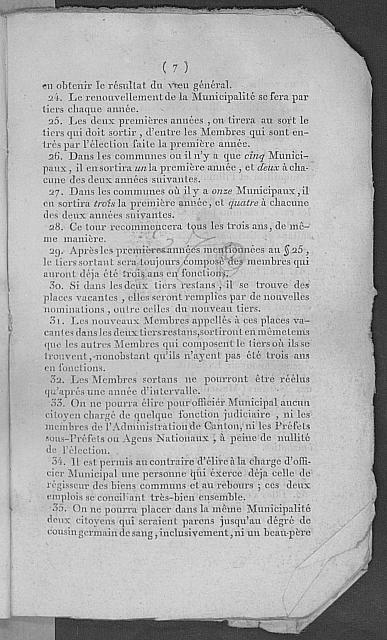 ( 7 )
en obtenir le résultat du vœu général.
24. Le renouvellement de la Municipalité se fera par
tiers chaque année.
25. Les deux premières années , on tirera au sort le
tiers qui doit sortir , d'entre les Membres qui sont en-
trés par l'élection faite la première année.
26. Dans les communes ou il n'y a que cinq Munici-
paux , il en sortira un la première année , et deux à cha-
cune des deux années suivantes.
27. Dans les communes où il y a onze Municipaux, il
en sortira trois la première année, et quatre à chacune
des deux années suivantes.
28. Ce tour recommencera tous les trois ans, de mê-
me manière.
29. Après les premières années mentionnées au § 25 ,
le tiers sortant sera toujours composé des membres qui
auront déja été trois ans en fonctions.
30. Si dans les deux tiers restans , il se trouve des
places vacantes , elles seront remplies par de nouvelles
nominations , outre celles du nouveau tiers.
31. Les nouveaux Membres appellés à ces places va-
cantes dans les deux tiers restans, sortiront en même tems
que les autres Membres qui composent le tiers où ils se
trouvent, nonobstant qu'ils n'ayent pas été trois ans
en fonctions.
32. Les Membres sortans ne pourront être réélus
qu'après une année d'intervalle.
33. On ne pourra élire pour officier Municipal aucun
citoyen chargé de quelque fonction judiciaire , ni les
membres de l'Administration de Canton, ni les Préfets
sous-Préfets ou Agens Nationaux , à peine de nullité
de l'élection.
34. Il est permis au contraire d'élire à la charge d'offi-
cier Municipal une personne qui éxerce déja celle de
régisseur des biens communs et au rebours ; ces deux
emplois se conciliant très-bien ensemble.
35. On ne pourra placer dans la même Municipalité
deux citoyens qui seraient parens jusqu'au dégré de
cousin germain de sang, inclusivement, ni un beau-père